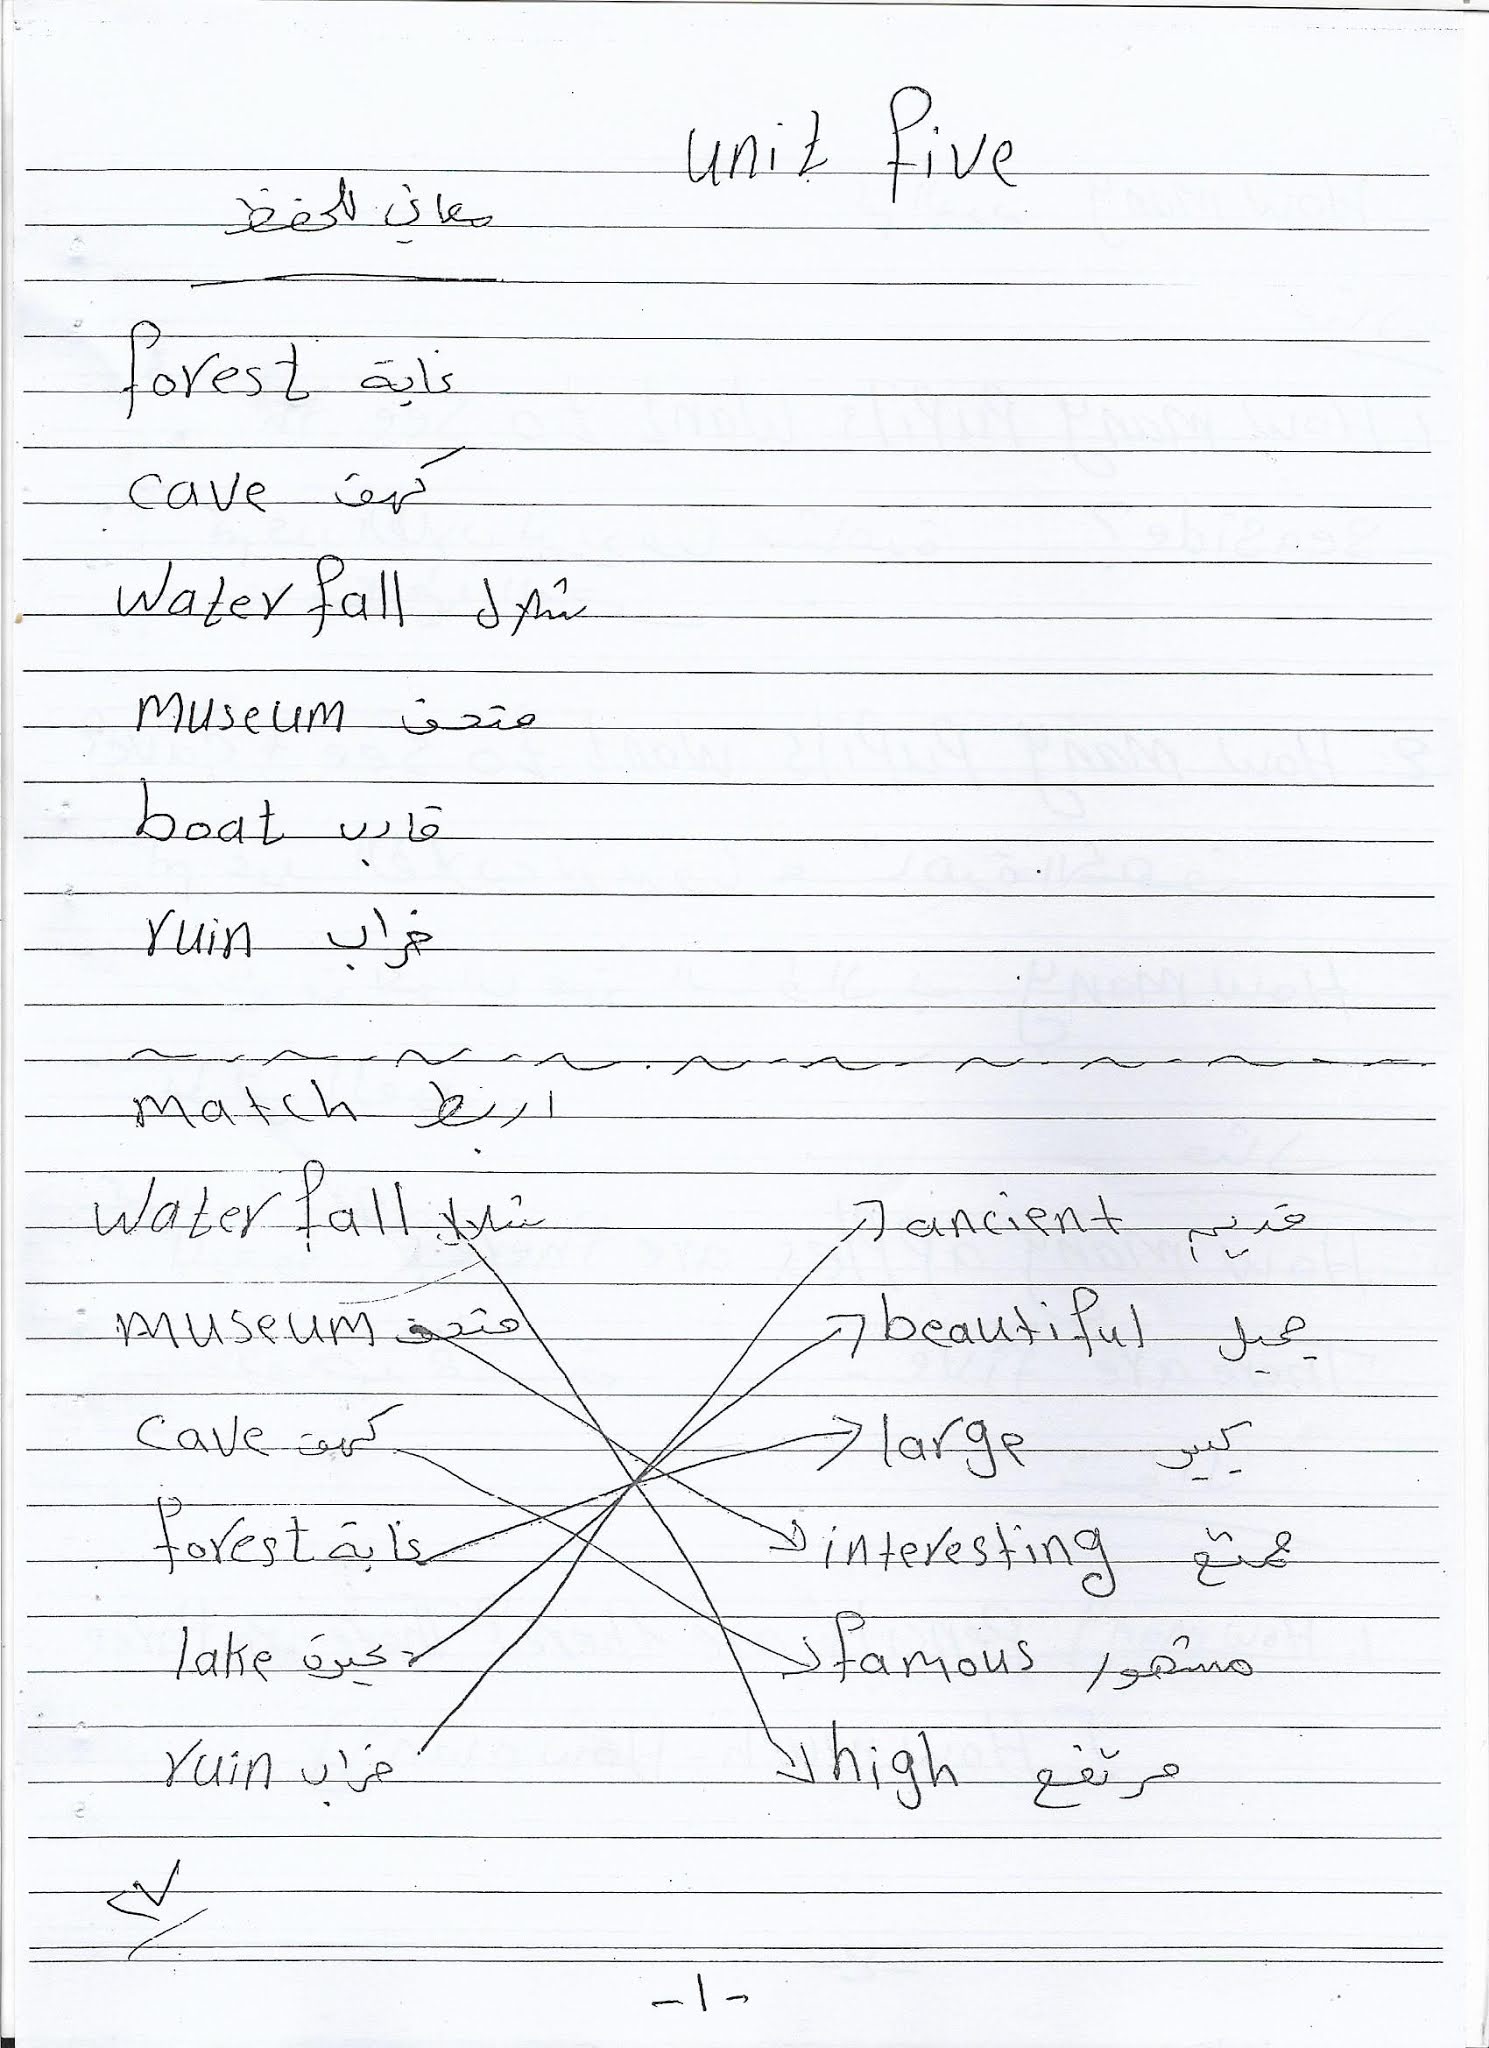 unit five
معاني للحفظ
forest غابة
cave كهف
waterfall شلال
museum متحف
boat قارب
ruin خراب
match اربط
waterfall شلال ancient قديم
museum متحف beautiful جميل
cave كهف large كبير
forest غابة interesting ممتع
lake بحيرة famous مشهور
ruin خراب high مرتفع
-1-